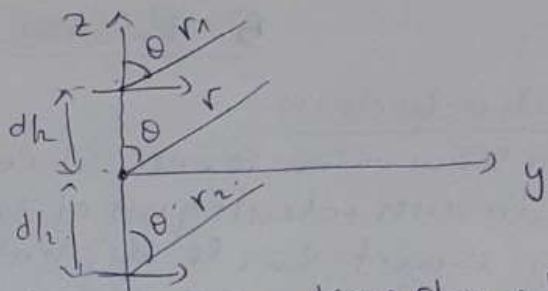 z
θ r1
d/2
θ r
y
d/2
θ r2